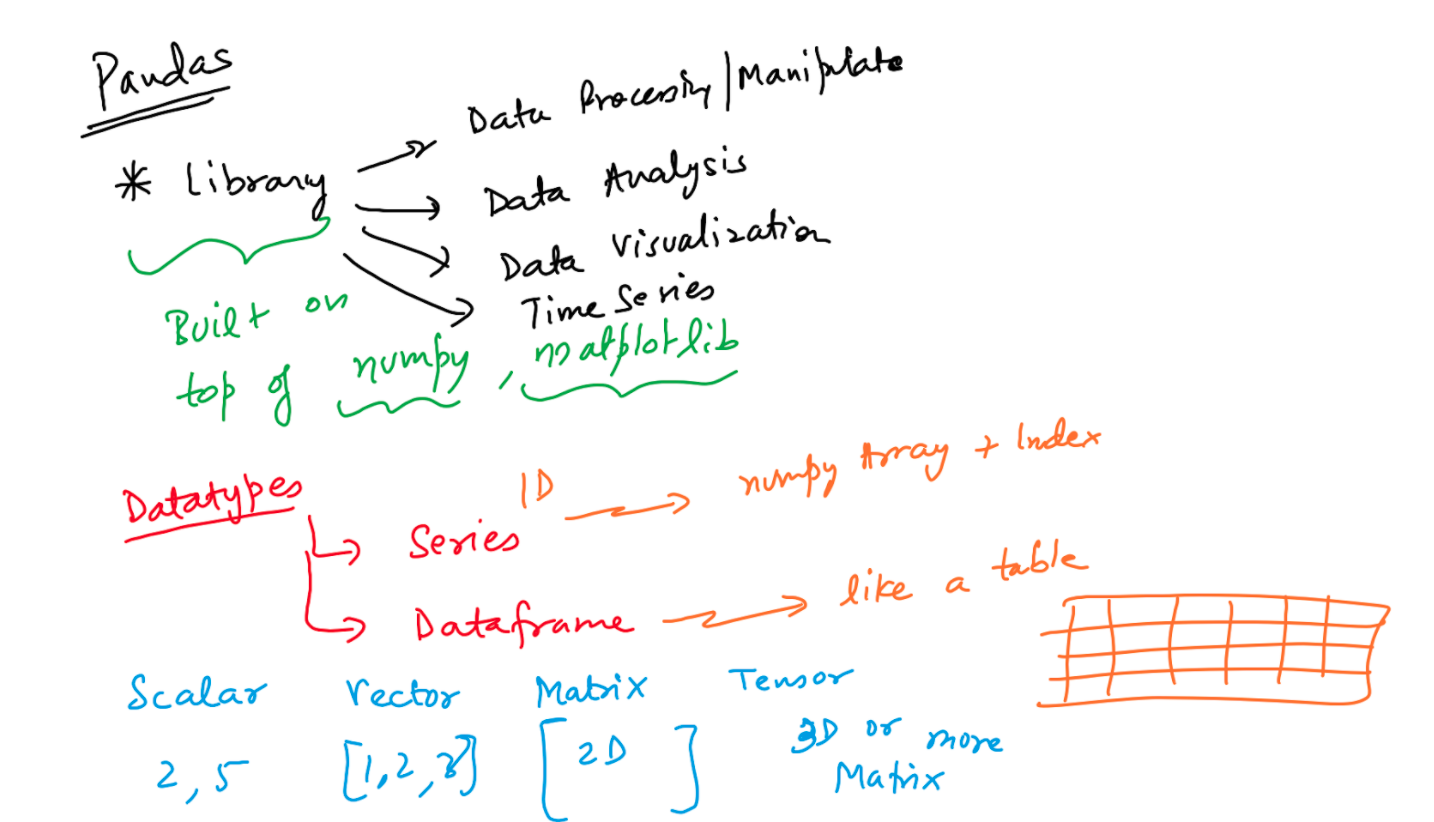 Pandas
* Library
Data Processing/Manipulate
Data Analysis
Data Visualization
Time Series
Built on
top of numpy, matplotlib
Datatypes
Series 1D numpy Array + Index
Dataframe like a table
Scalar Vector Matrix Tensor
2, 5 [1,2,3] [2D] 3D or more
Matrix